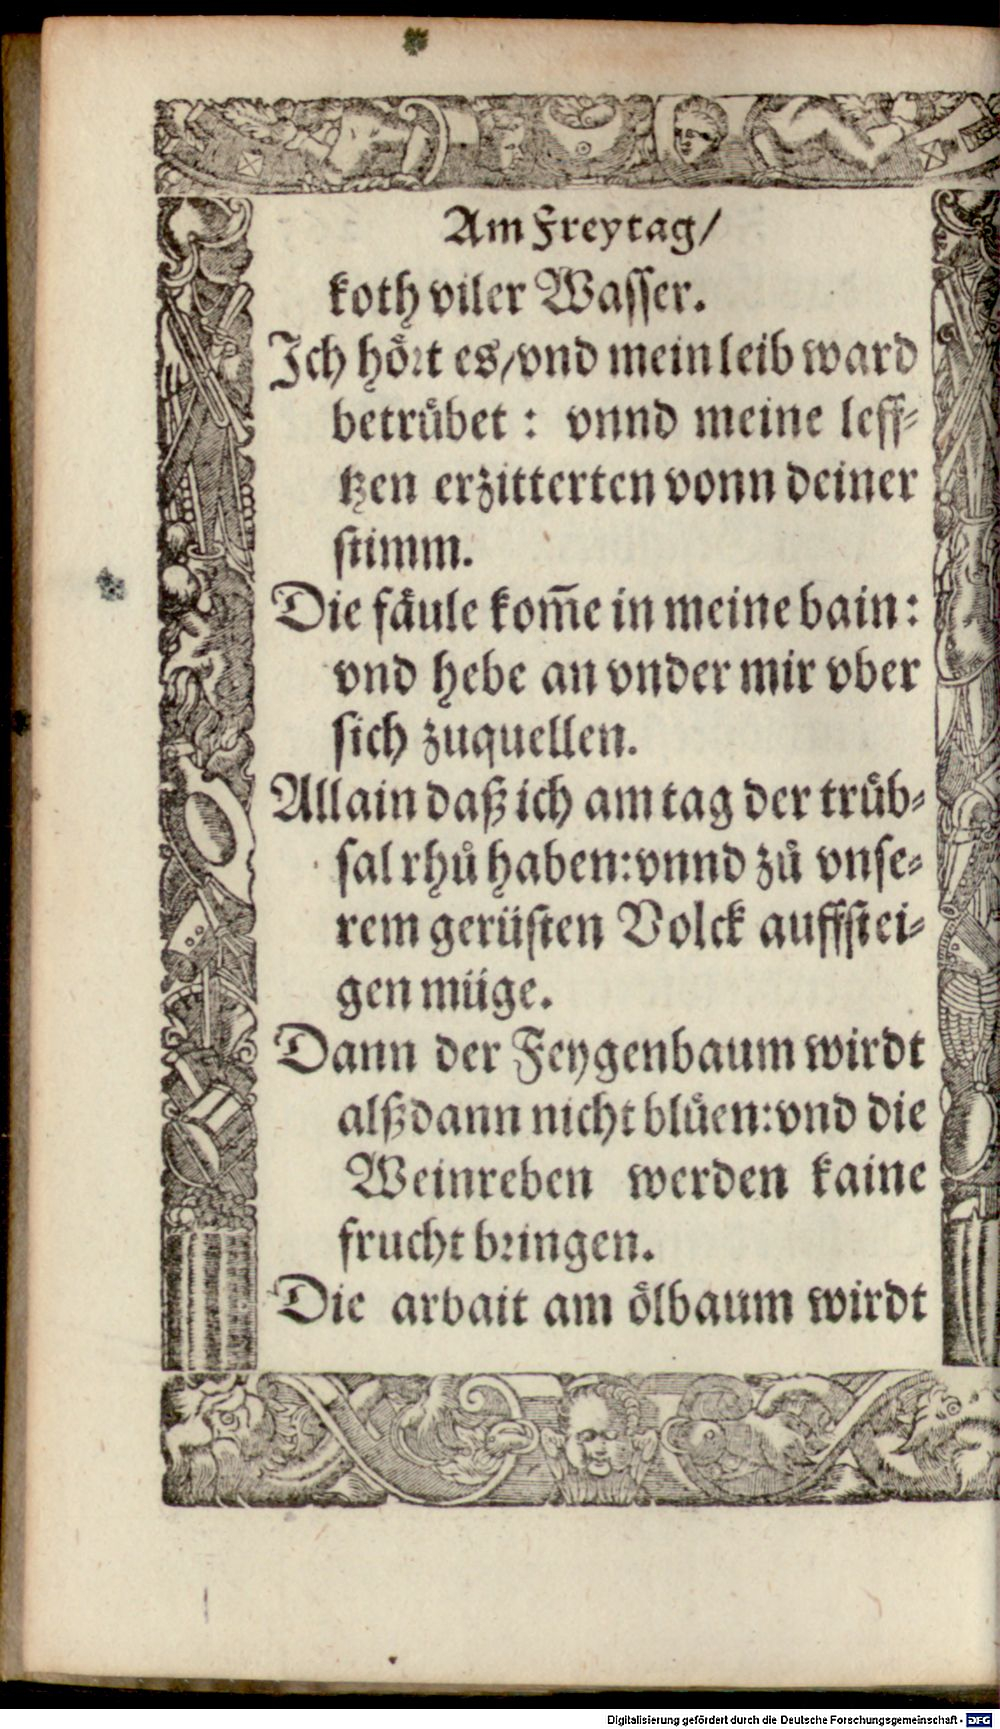 Am Freytag/
koth viler Wasser.
Ich hoͤrt es/vnd mein leib ward
betruͤbet : vnnd meine leff⸗
tzen erzitterten vonn deiner
stimm.
Die faͤule kom̃e in meine bain:
vnd hebe an vnder mir vber
sich zuquellen.
Allain daß ich am tag der truͤb⸗
sal rhuͦ haben: vnnd zuͦ vnse⸗
rem geruͤsten Volck auffstei⸗
gen muͤge.
Dann der Feygenbaum wirdt
alßdann nicht bluͤen: vnd die
Weinreben werden kaine
frucht bringen.
Die arbait am oͤlbaum wirdt
Digitalisierung gefördert durch die Deutsche Forschungsgemeinschaft - DFG